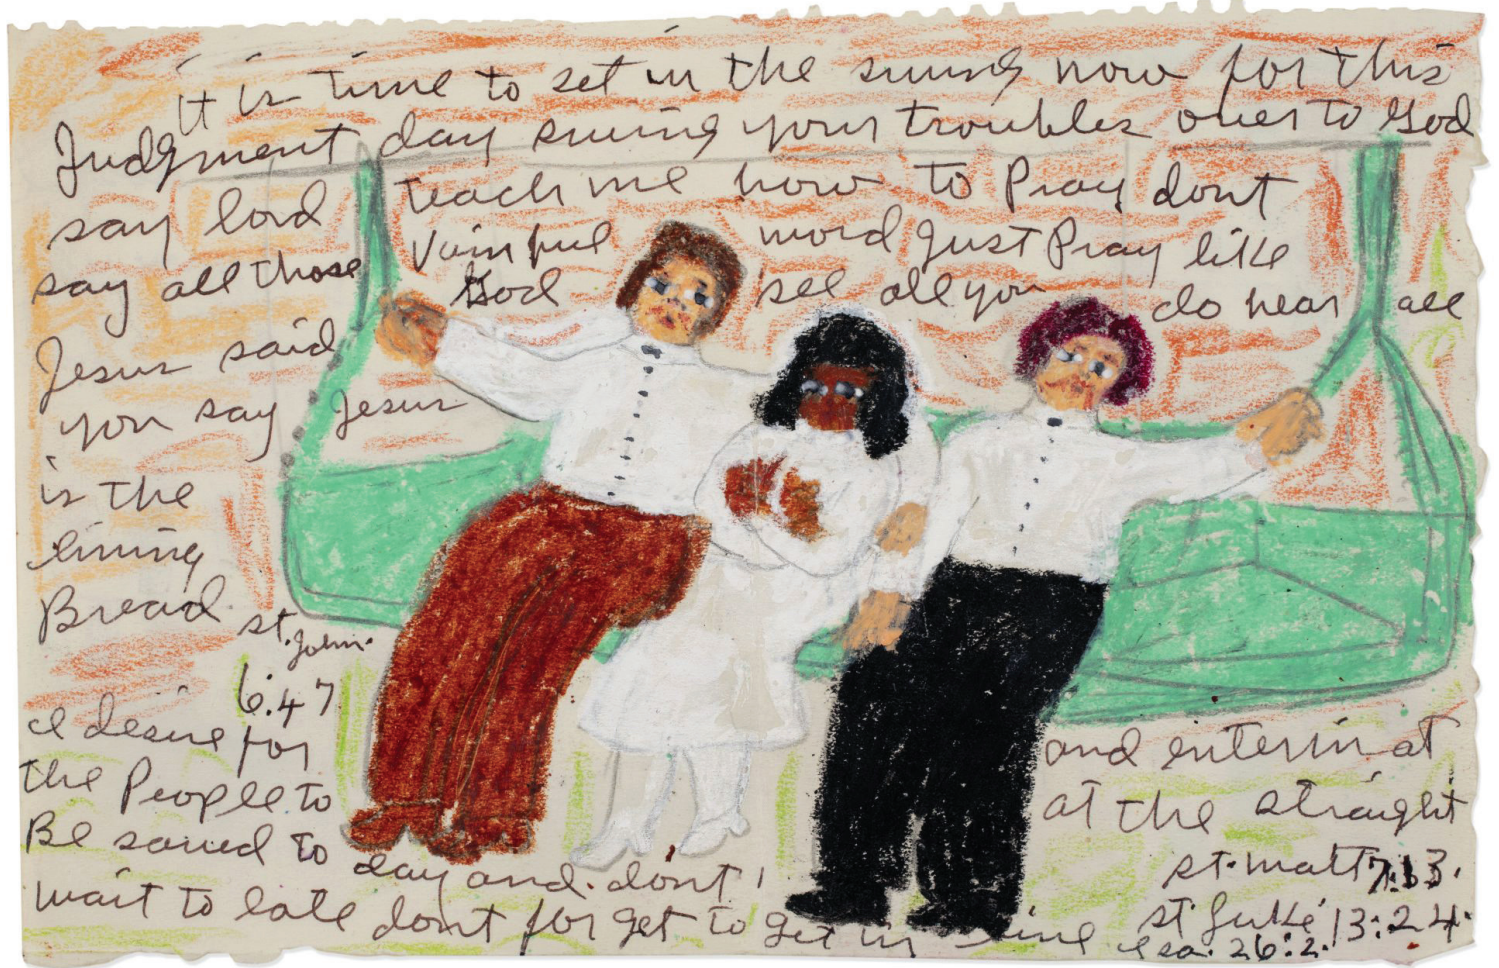 it is time to set in the swing now for this
Judgment day swing your troubles over to God
say lord teach me how to Pray dont
say all those Vainful word Just Pray like
Jesus said God see all you do hear all
you say Jesus
is the
living
Bread
st. John.
6:47
I desire for
the People to
Be saved to day and. dont
wait to late dont for get to get in line
and enter in at
at the straight
st. matt 7:13.
st Luke 13:24.
esa. 26:2.